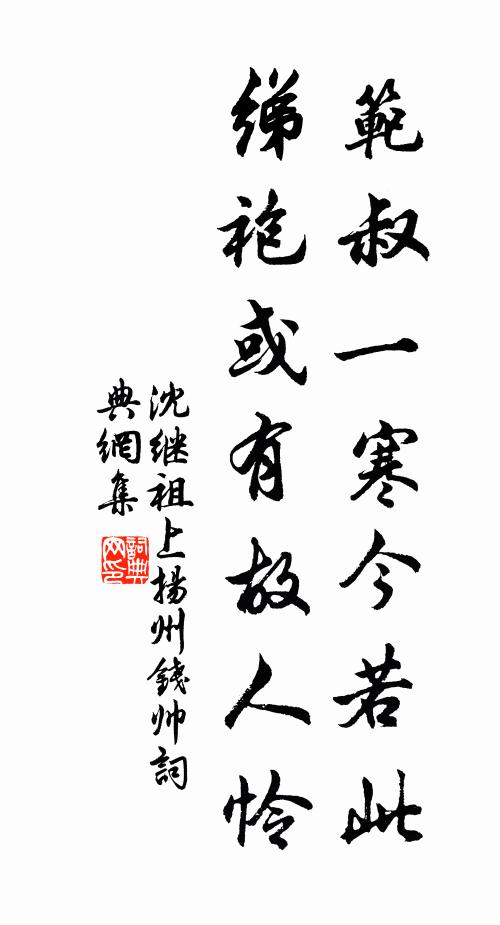 範叔一寒今若此
綈袍或有故人怜
沈继祖上揚州錢帅詞
典網集
詞典网印